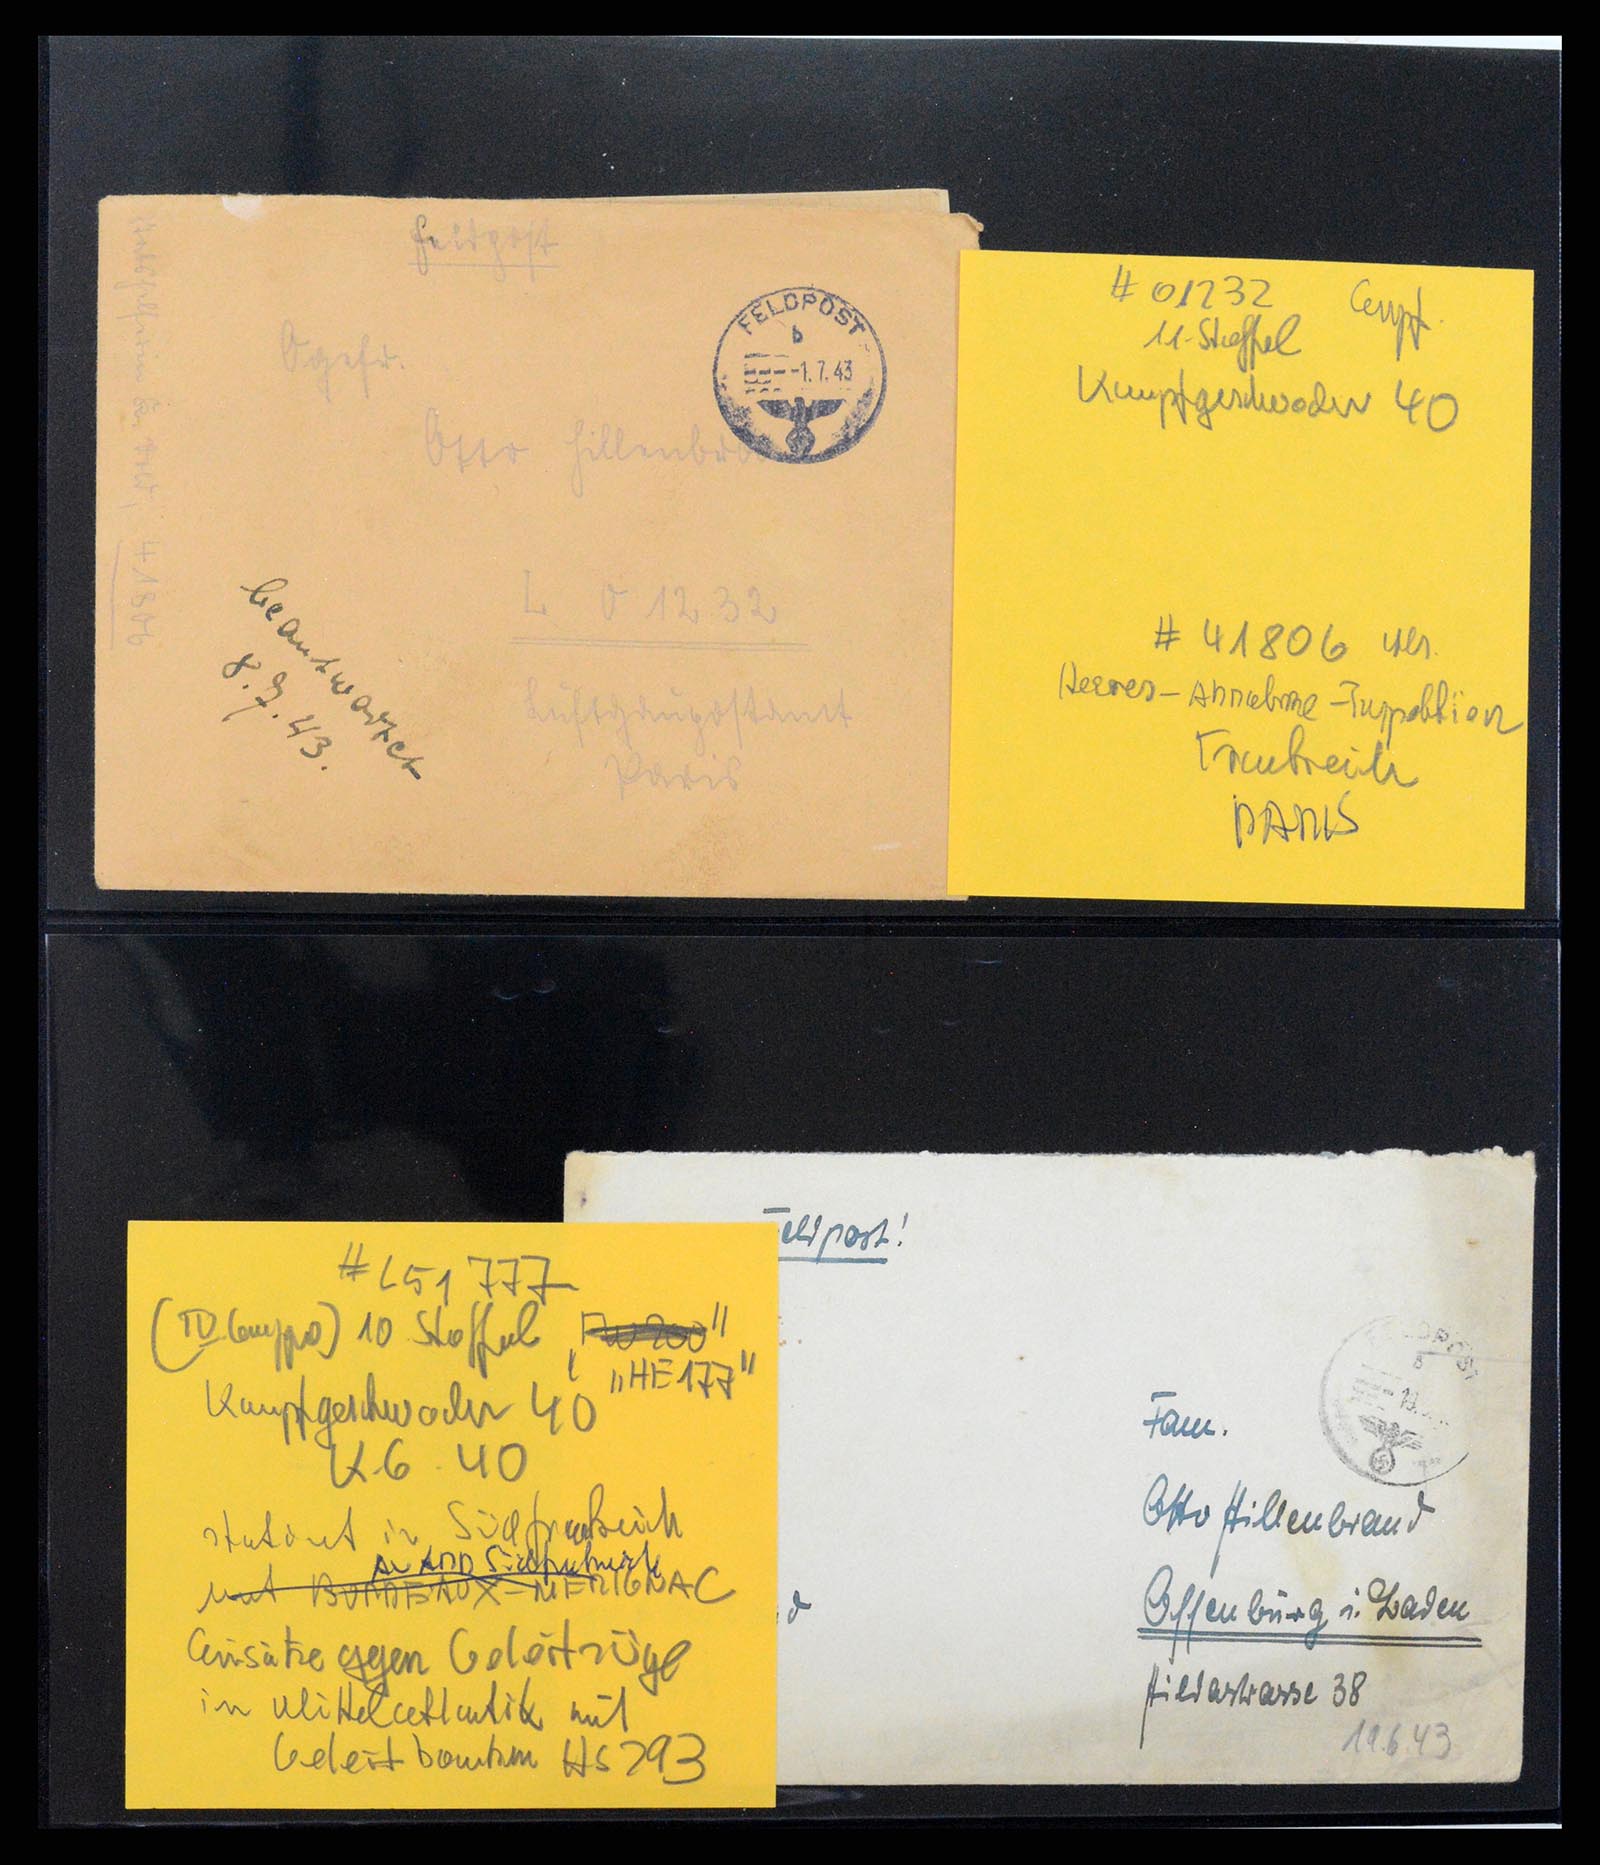 Feldpost
FELDPOST
b
-1.7.43
Ogefr.
Otto Hillenbrand
L 01232
Luftgaupostamt
Paris
41806
beantwortet
8.7.43.
#01232 Empf.
11-Staffel
Kampfgeschwader 40
#41806 Abs.
Heeres-Abnahme-Inspektion
Frankreich
PARIS
Feldpost!
FELDPOST
19.
Fam.
Otto Hillenbrand
Offenburg i. Baden
Hildastrasse 38
19.6.43
#L51777
(IV Gruppe) 10 Staffel "FW 200"
"HE 177"
Kampfgeschwader 40
KG 40
stationt in Südfrankreich
Südfrankreich
mit BORDEAUX-MERIGNAC
Einsätze gegen Geleitzüge
in Mittelatlantik mit
Geleitbomben HS 293